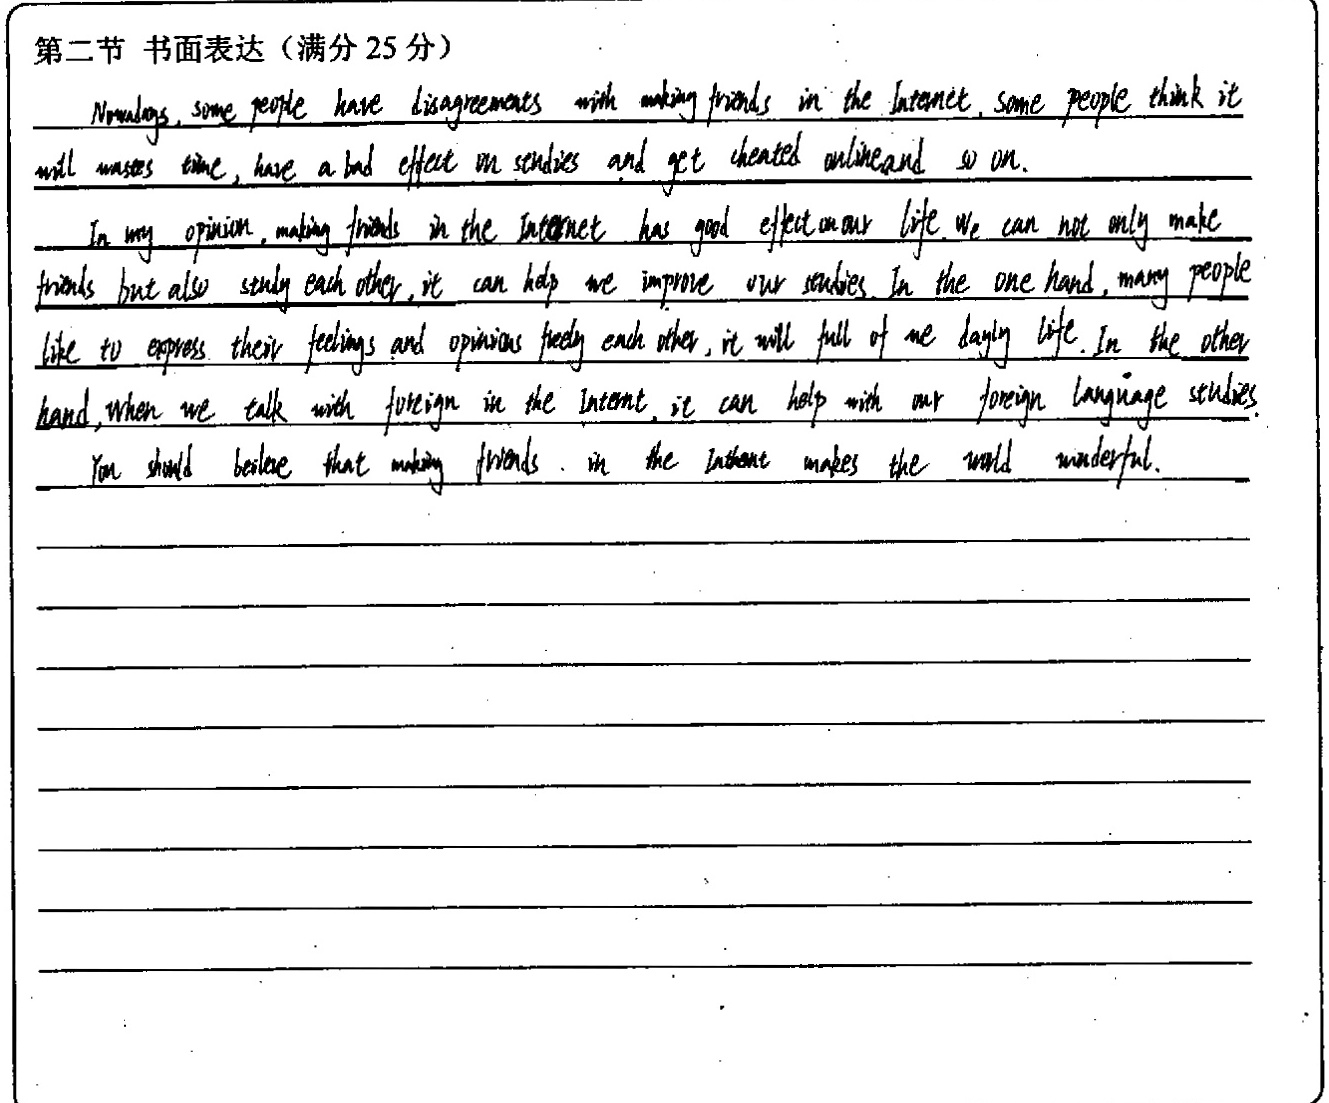 第二节 书面表达（满分 25 分）
Nowadays, some people have disagreements with making friends in the Internet, some people think it
will wastes time, have a bad effect on studies and get cheated online and so on.
In my opinion, making friends in the Internet has good effect on our life. We can not only make
friends but also study each other, it can help we improve our studies. In the one hand, many people
like to express their feelings and opinions freely each other, it will full of we dayly life. In the other
hand, when we talk with foreign in the Internt, it can help with our foreign language studies.
You should beileve that making friends in the makes the world winderful.